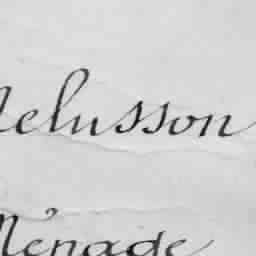 Melusson
Ménage